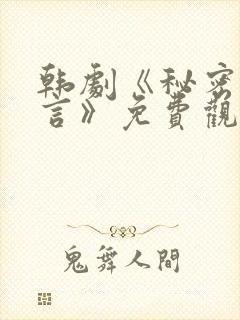 韩劇《秘密
言》免費觀
鬼舞人間